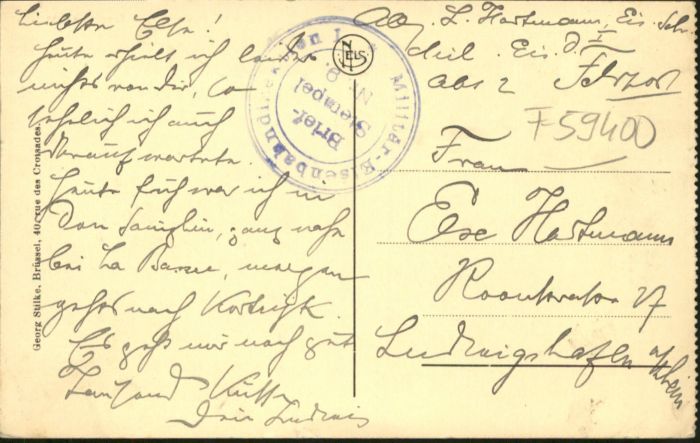 Liebste Else!
Heute erhielt ich leider
nichts von dir, so
sehnlich ich auch
darauf wartete.
Heute früh war ich in
Don Sainghin, ganz nahe
bei La Bassee, morgen
gehts nach Kortrijk.
Es geht mir noch gut
Tausend Küsse
Dein Ludwig
Georg Stilke, Brüssel, 40, rue des Croisades.
NELS
Militär-Eisenbahndirektion I
Brief-
Stempel
Nr. 9
Abs. L. Hartmann, Eis. Sekr.
Mil. Eis. D. I
Abt 2
F 59400
Frau
Else Hartmann
Ludwigshafen a/Rhein